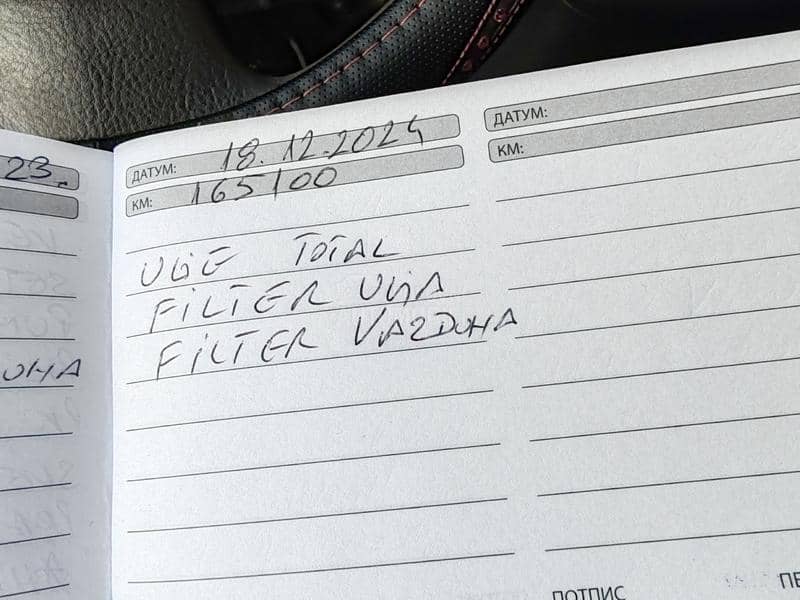 23.
UHA
ДАТУМ: 18.12.2024
КМ: 165100
ULJE TOTAL
FILTER ULJA
FILTER VAZDUHA
ДАТУМ:
КМ:
ПОТПИС